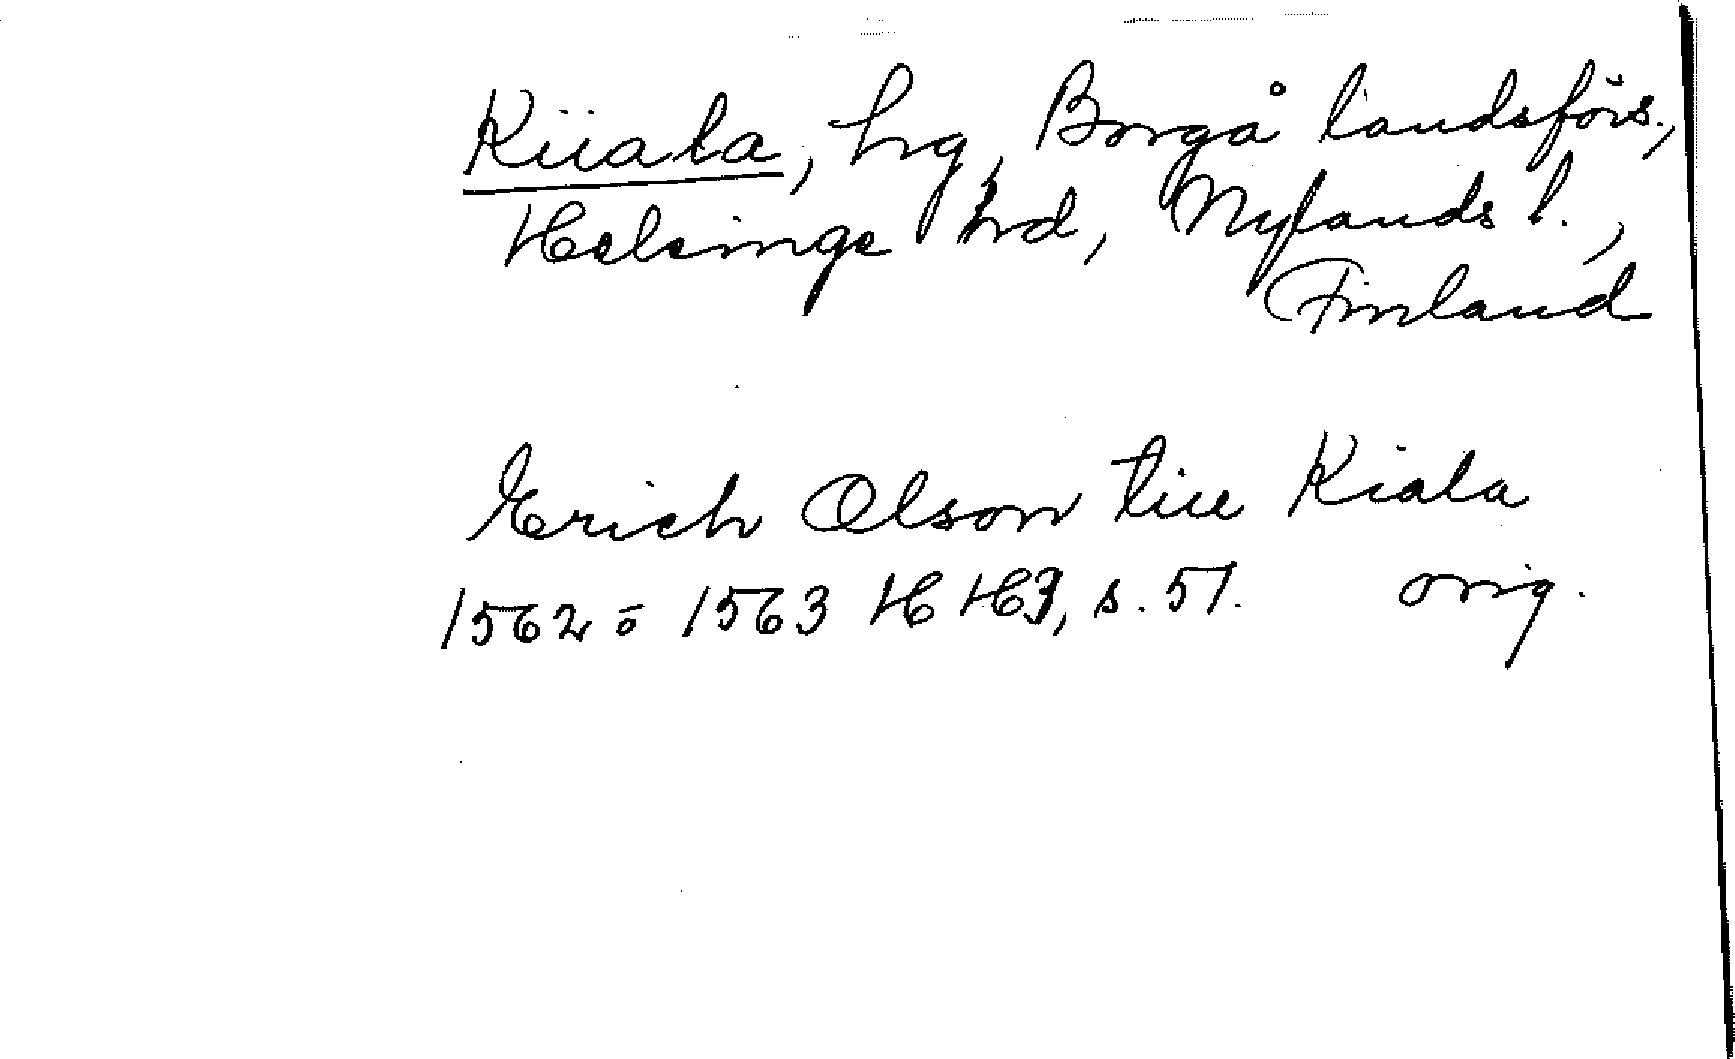 Kiiala, hg, Borgå landsförs.,
Helsinge hd, Nylands l.,
Finland
Erich Olson till Kiala
1562 ō 1563 H H 3, s. 51. orig.